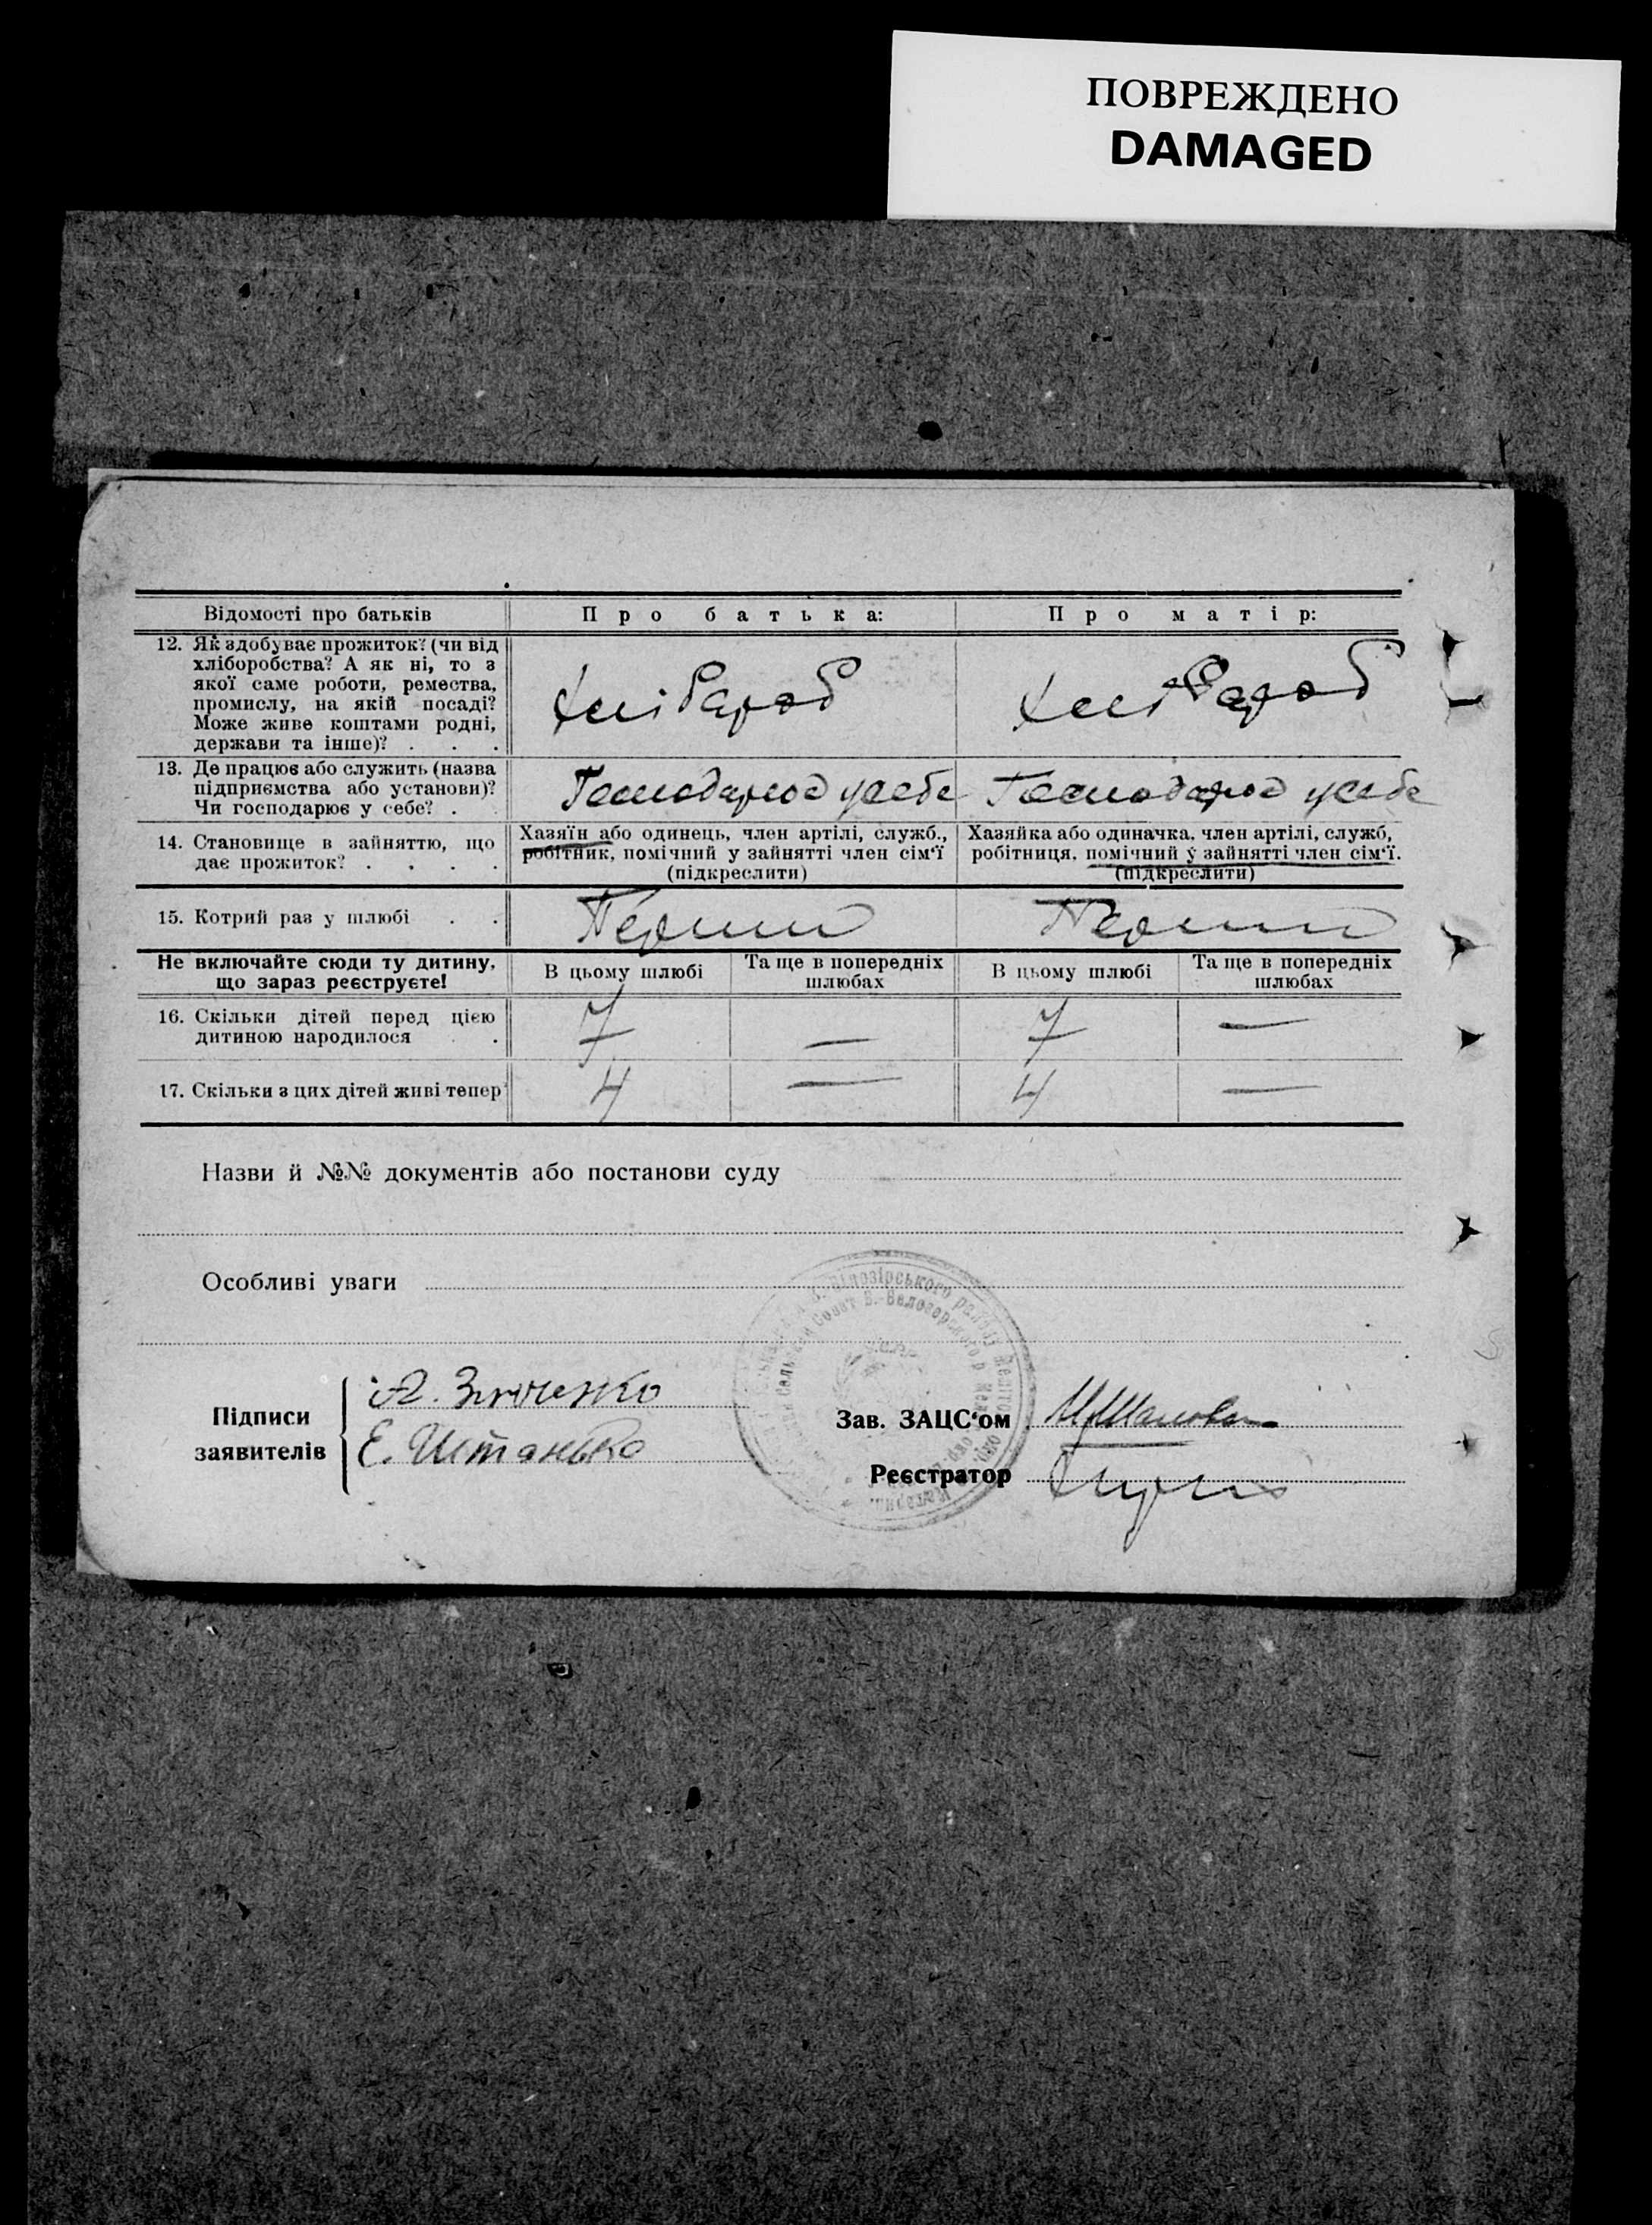 ПОВРЕЖДЕНО
DAMAGED
Відомості про батьків
Про батька:
Про матір:
12. Як здобуває прожиток? (чи від
хліборобства? А як ні, то з
якої саме роботи, ремества,
промислу, на якій посаді?
Може живе коштами родні,
держави та інше)? . . .
Хлібароб
Хлібароб
13. Де працює або служить (назва
підприємства або установи)?
Чи господарює у себе? .
Господарює усебе
Господарює усебе
14. Становище в зайняттю, що
дає прожиток? . . . .
Хазяїн або одинець, член артілі, служб.,
робітник, помічний у зайнятті член сім'ї
(підкреслити)
Хазяйка або одиначка, член артілі, служб,
робітниця, помічний у зайнятті член сім'ї.
(підкреслити)
15. Котрий раз у шлюбі . .
Перший
Перший
Не включайте сюди ту дитину,
що зараз реєструєте!
В цьому шлюбі
Та ще в попередніх
шлюбах
В цьому шлюбі
Та ще в попередніх
шлюбах
16. Скільки дітей перед цією
дитиною народилося .
7
—
7
—
17. Скільки з цих дітей живі тепер
4
—
4
—
Назви й №№ документів або постанови суду
Особливі уваги
Підписи
заявителів
Е. Штанько
Зав. ЗАЦС'ом
Реєстратор